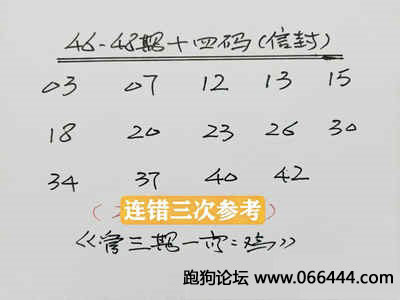 46-48期十四码(信封)
03 07 12 13 15
18 20 23 26 30
34 37 40 42
连错三次参考
《管三期一肖:鸡》
跑狗论坛 www.066444.com